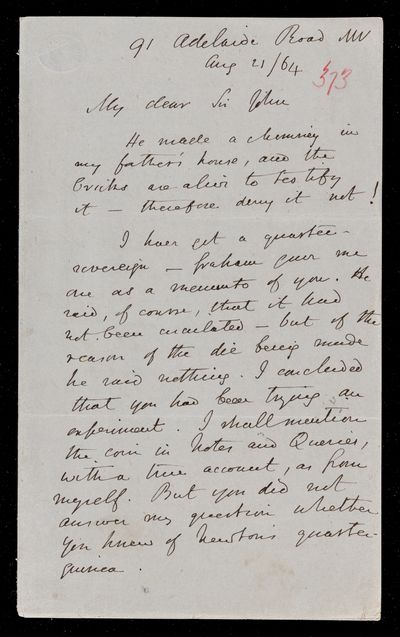 91 Adelaide Road NW
Aug 21/64
373
My dear Sir John
He made a chimney in
my father's house, and the
bricks are alive to testify
it — therefore deny it not!
I have got a quarter-
sovereign — Graham gave me
one as a memento of you. He
said, of course, that it had
not been circulated — but of the
reason of the die being made
he said nothing. I concluded
that you had been trying an
experiment. I shall mention
the coin in Notes and Queries,
with a true account, as from
myself. But you did not
answer my question whether
you knew of Newton's quarter-
guinea.